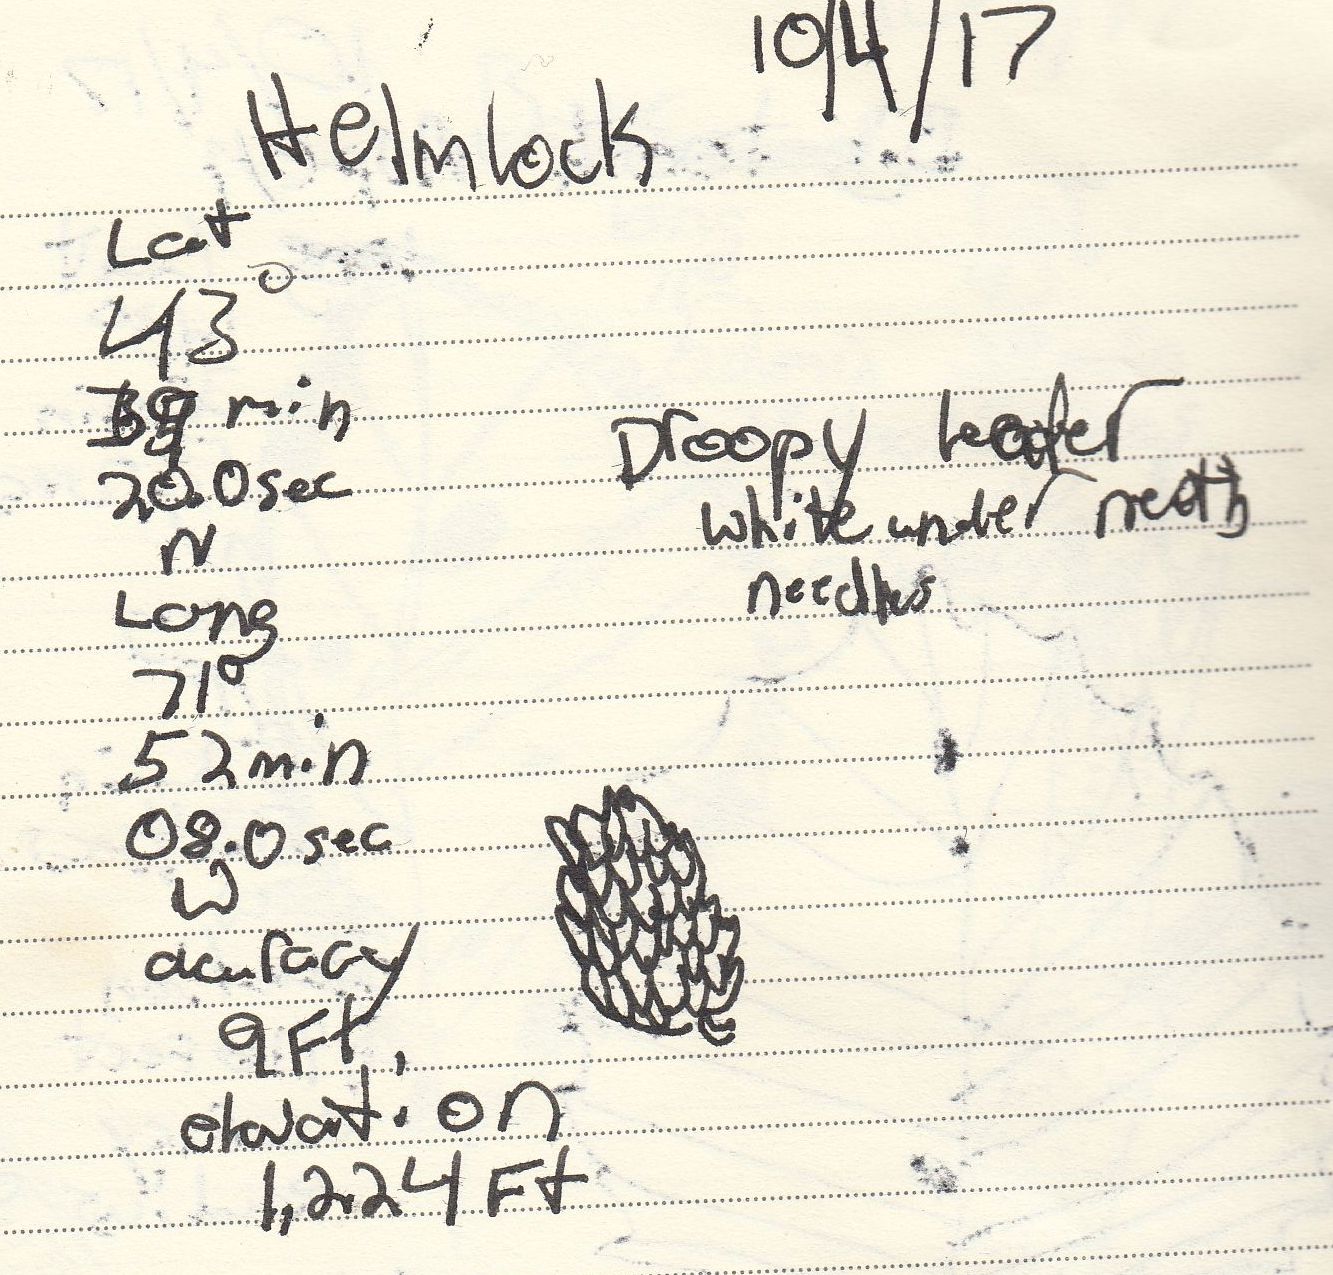 10/4/17
Helmlock
Lat
43°
min
20.0 sec
N
Long
71°
52 min
08.0 sec
W
acuracy
9 Ft.
elevation
1,224 Ft
Droopy leader
white under neath
needles